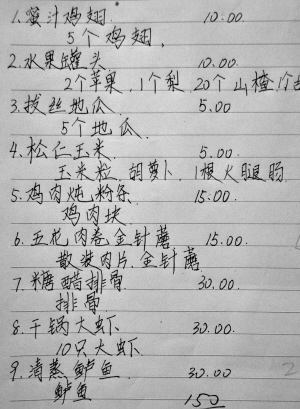 1.蜜汁鸡翅. 10.00.
5个鸡翅.
2.水果罐头. 10.00.
2个苹果.1个梨.20个山楂
3.拔丝地瓜. 5.00
5个地瓜.
4.松仁玉米. 5.00.
玉米粒.胡萝卜.1根火腿肠
5.鸡肉炖粉条 15.00.
鸡肉块.
6.五花肉卷金针蘑 15.00.
散装肉片.金针蘑.
7.糖醋排骨. 30.00
排骨.
8.干锅大虾. 30.00.
10只大虾.
9.清蒸鲈鱼 30.00
鲈鱼 150
2